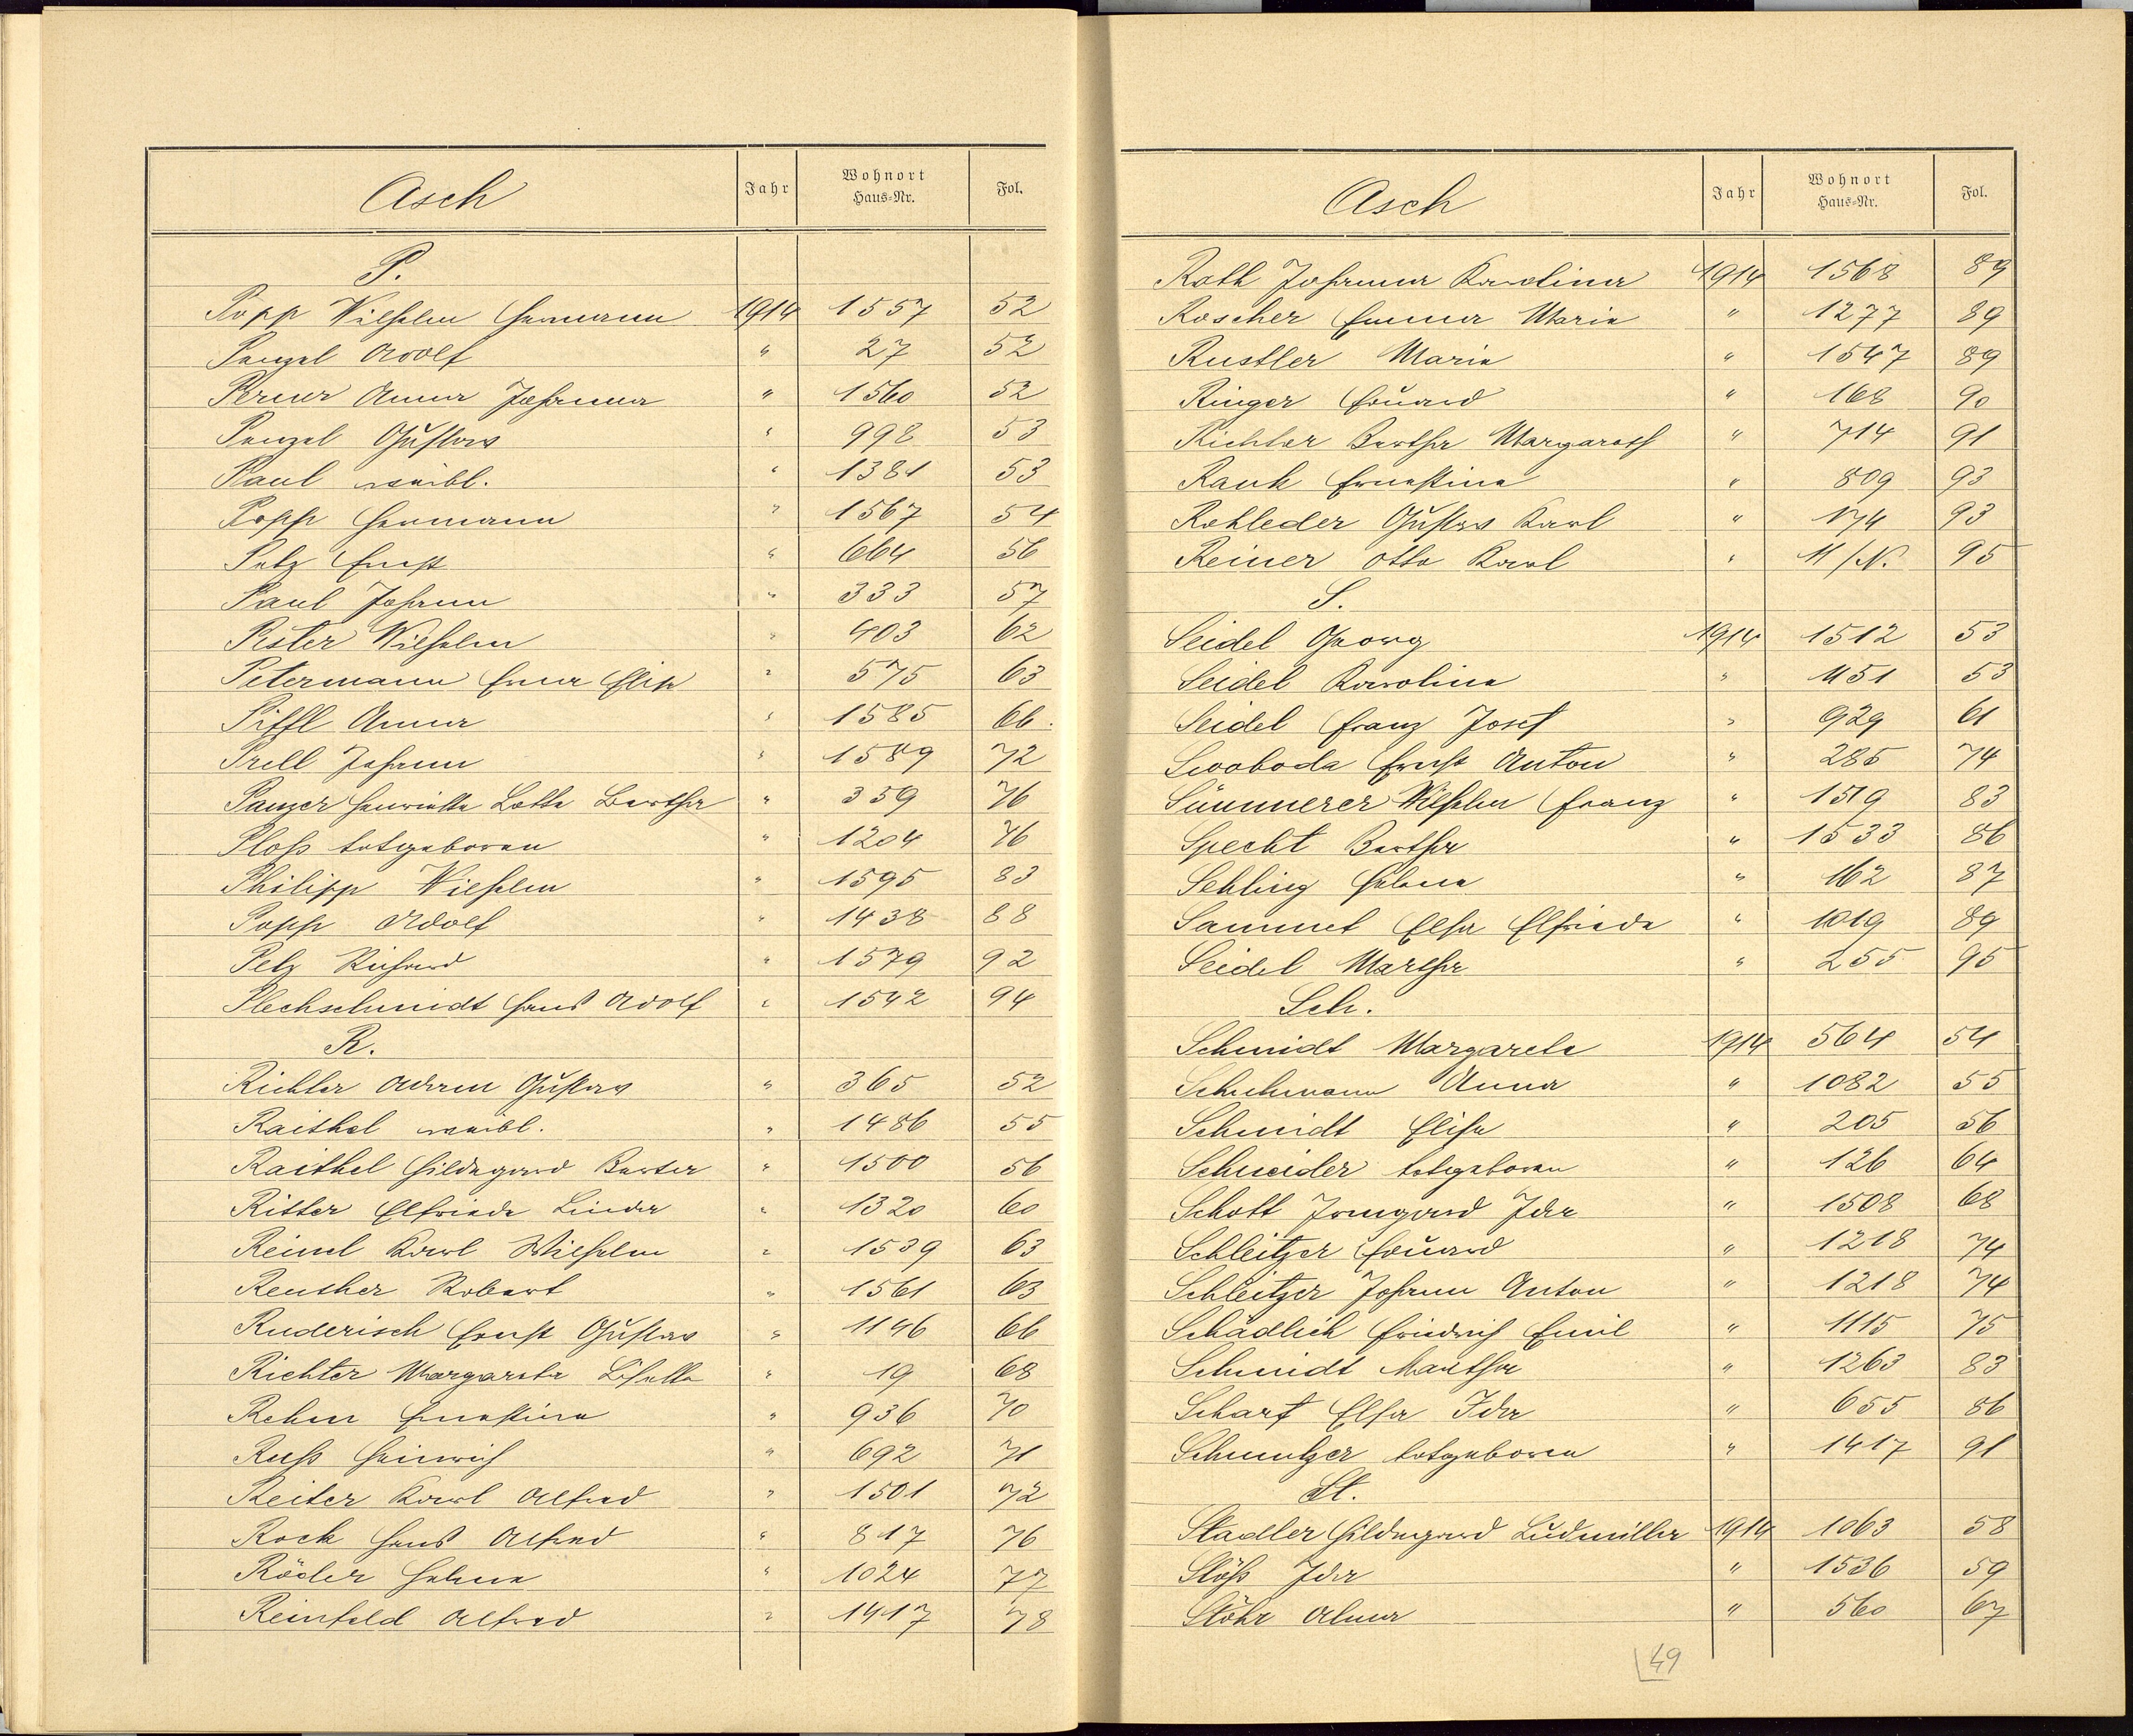 Asch Jahr Wohnort Haus-Nr. Fol.
P.
Popp Wilhelm Hermann 1914 1557 52
Penzel Adolf " 27 52
Perner Anna Johanna " 1560 52
Penzel Gustav " 998 53
Paul weibl. " 1381 53
Popp Hermann " 1567 54
Pelz Ernst " 664 56
Paul Johann " 333 57
Pester Wilhelm " 403 62
Petermann Erna Elise " 575 63
Piffl Anna " 1585 66.
Prell Johann " 1589 72
Panzer Henriette Lotte Bertha " 359 76
Ploß totgeboren " 1204 76
Philipp Wilhelm " 1595 83
Popp Adolf " 1438 88
Pelz Richard " 1579 92
Plechschmidt Hans Adolf " 1542 94
R.
Richter Adam Gustav " 365 52
Raithel weibl. " 1486 55
Raithel Hildegard Berta " 1500 56
Ritter Elfriede Linda " 1320 60
Reinel Karl Wilhelm " 1539 63
Reuther Robert " 1561 63
Ruderisch Ernst Gustav " 1146 66
Richter Margareta Lisette " 19 68
Rehm Ernestina " 936 70
Ruß Heinrich " 692 71
Reiter Karl Alfred " 1501 72
Rock Hans Alfred " 817 76
Röder Helene " 1024 77
Reinfeld Alfred " 1417 78
Asch Jahr Wohnort Haus-Nr. Fol.
Roth Johanna Karolina 1914 1568 89
Roscher Emma Marie " 1277 89
Rustler Marie " 1547 89
Ringer Eduard " 168 90
Richter Bertha Margareth " 714 91
Rauh Ernestine " 809 93
Rohleder Gustav Karl " 174 93
Reiner Otto Karl " 11/N. 95
S.
Seidel Georg 1914 1512 53
Seidel Karoline " 1151 53
Seidel Franz Josef " 929 61
Swoboda Ernst Anton " 285 74
Sümmerer Wilhelm Franz " 1519 83
Specht Bertha " 1533 86
Sehling Helene " 162 87
Sammet Elsa Elfriede " 1019 89
Seidel Martha " 255 95
Sch.
Schmidt Margarete 1914 564 54
Schuhmann Anna " 1082 55
Schmidt Elise " 205 56
Schneider totgeboren " 126 64
Schott Irmgard Ida " 1508 68
Schleitzer Eduard " 1218 74
Schleitzer Johann Anton " 1218 74
Schädlich Friedrich Emil " 1115 75
Schmidt Martha " 1263 83
Scharf Elsa Ida " 655 86
Schmutzer totgeboren " 1417 91
St.
Stadler Hildegard Ludmilla 1914 1063 58
Stöß Ida " 1536 59
Stöhr Alma " 560 67
49